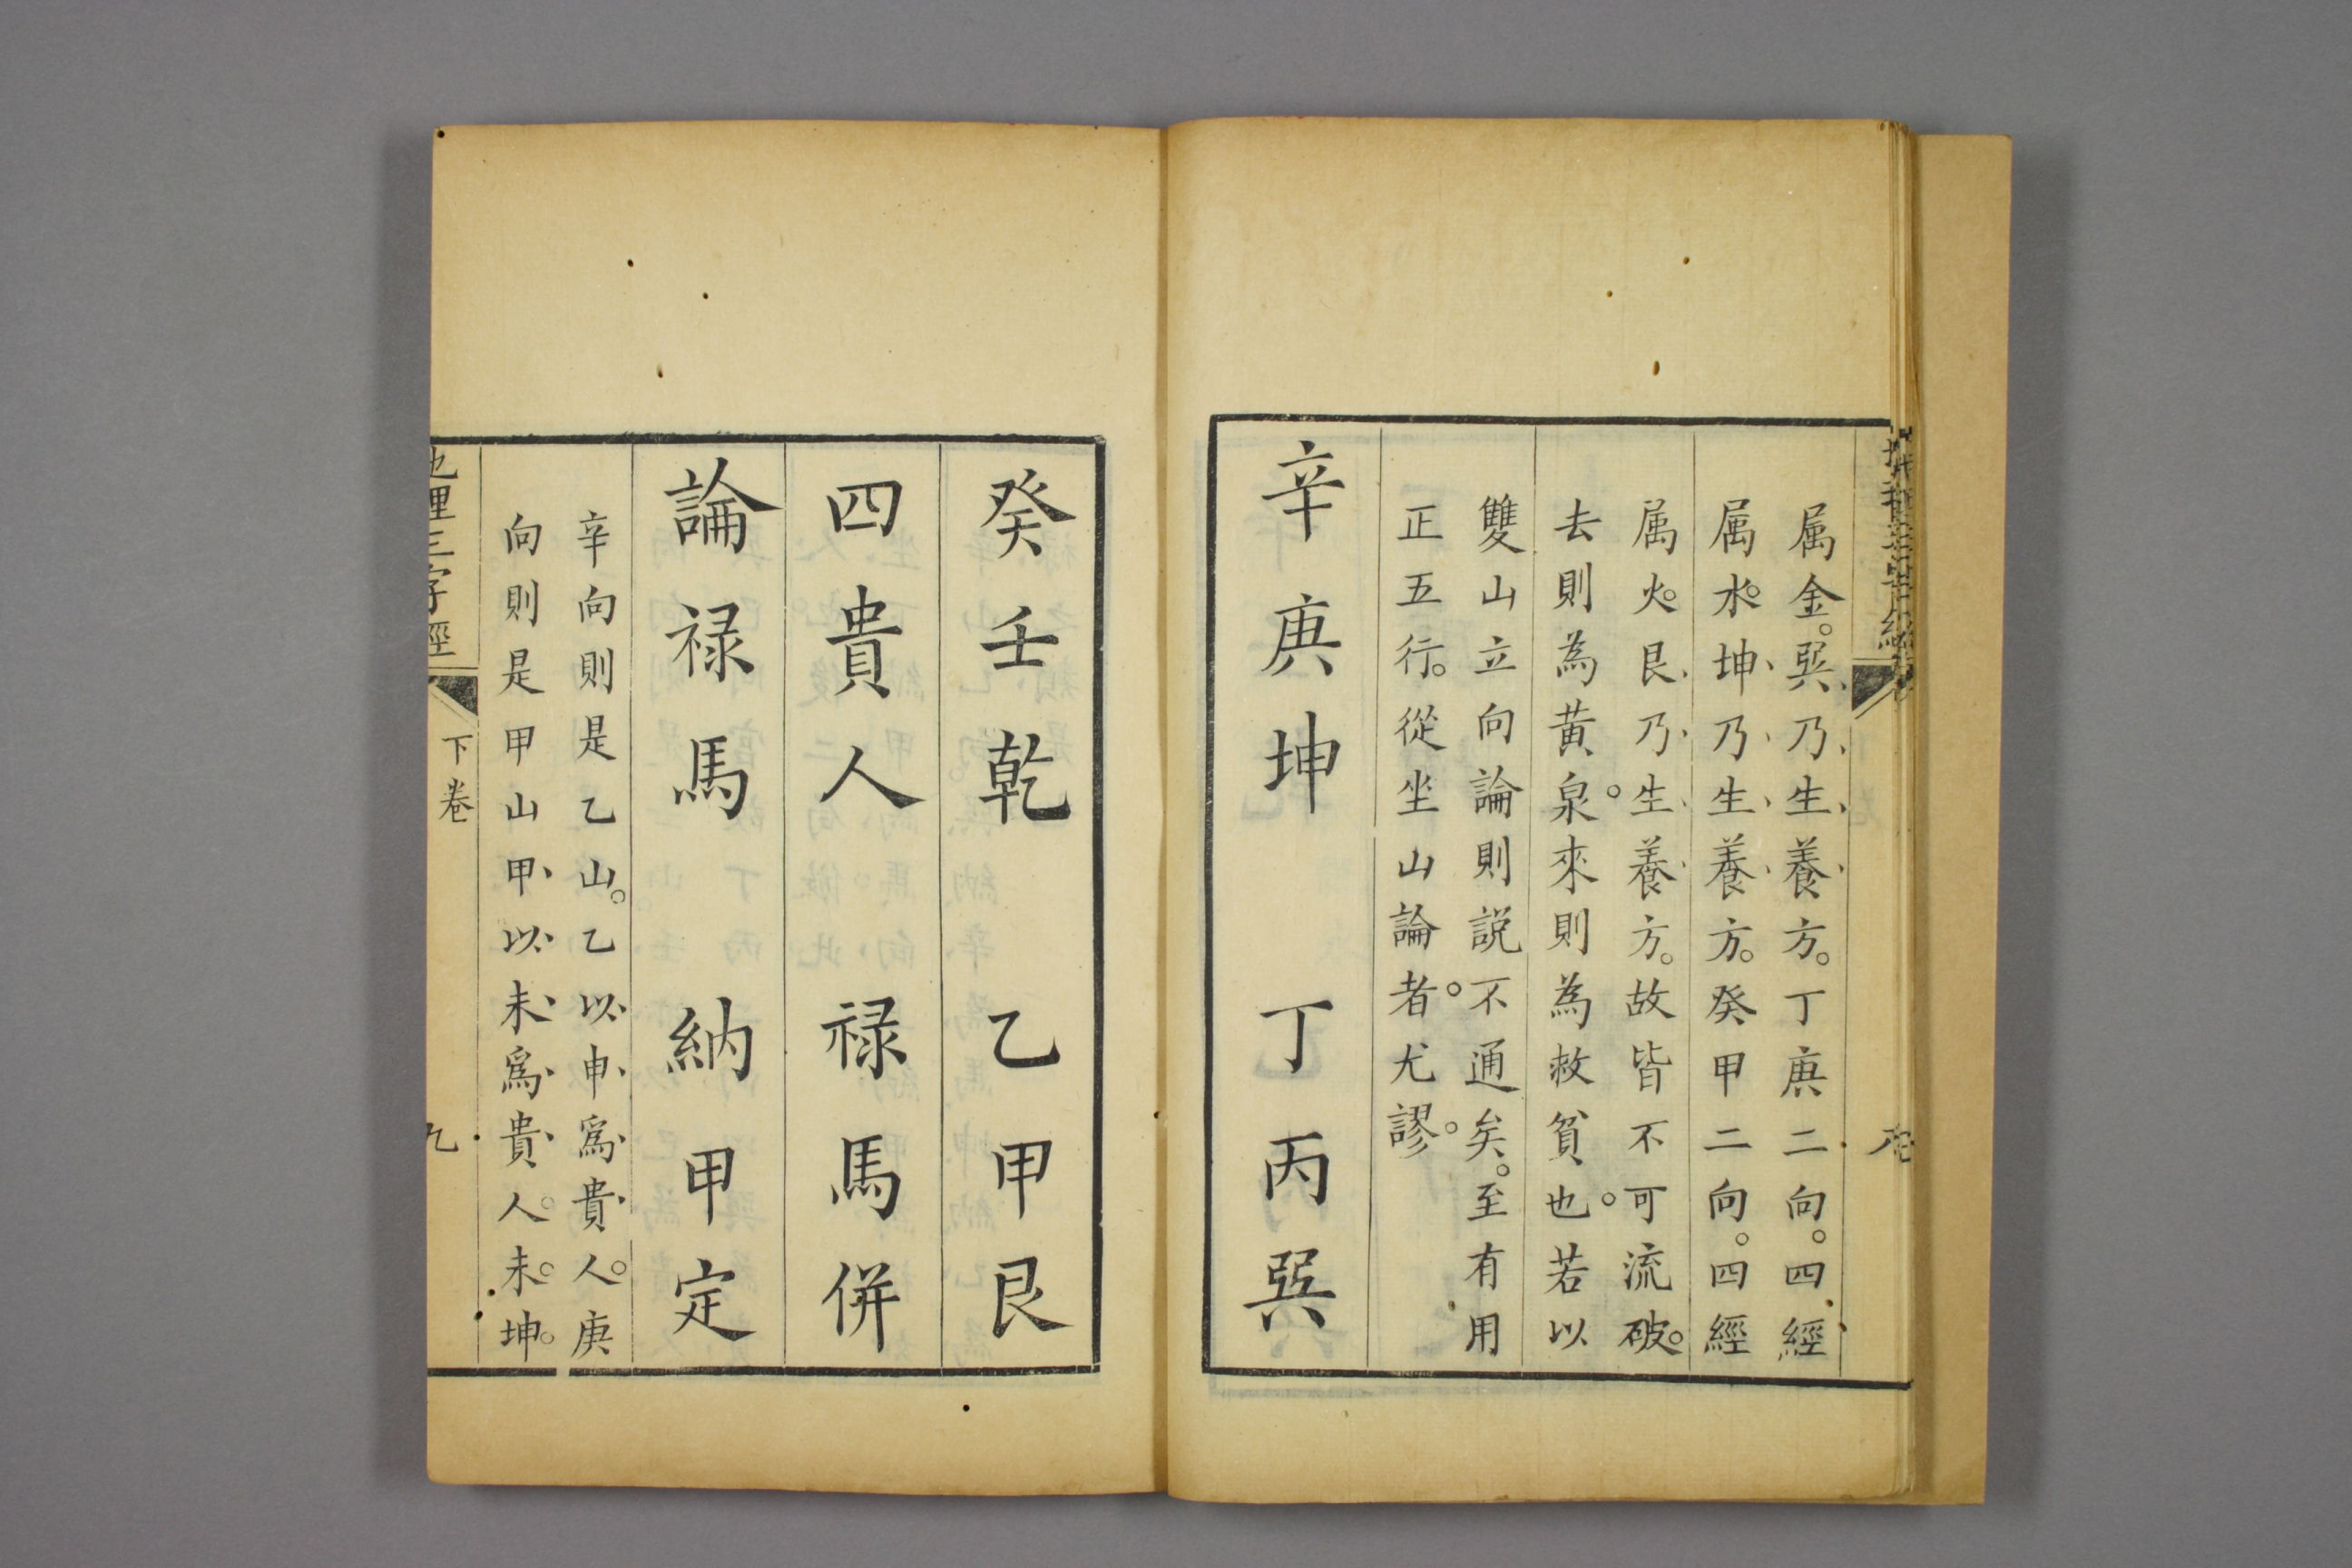 属金。巽乃生養方。丁庚二向。四經
属水。坤乃生養方。癸甲二向。四經
属火。艮乃生養方。故皆不可流破。
去則為黃泉。來則為救貧也。若以
雙山立向論則説不通矣。至有用
正五行。從坐山論者。尤謬。
辛庚坤　丁丙巽
癸壬乾　乙甲艮
四貴人　禄馬併
論禄馬　納甲定
辛向則是乙山。乙以申爲貴人。庚
向則是甲山甲以未爲貴人。未坤。
地理三字經　下卷　九